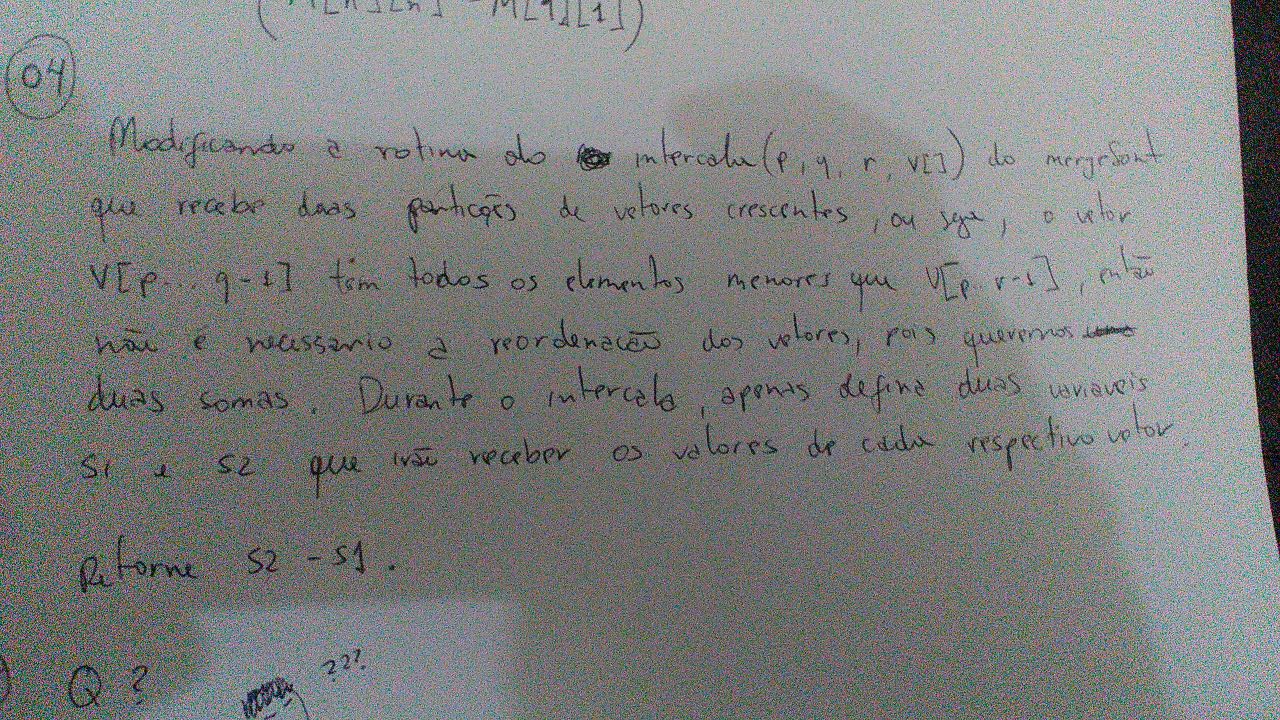 M[n][n] - M[1][1]
04
Modificando a rotina do intercala(p, q, r, V[]) do mergeSort
que recebe duas partições de vetores crescentes, ou seja, o vetor
V[p... q-1] têm todos os elementos menores que V[p..r-1], então
não e necessario a reordenacão dos vetores, pois queremos
duas somas. Durante o intercala, apenas defina duas variaveis
S1 e S2 que irão receber os valores de cada respectivo vetor.
Retorne S2 - S1.
Q ?
???